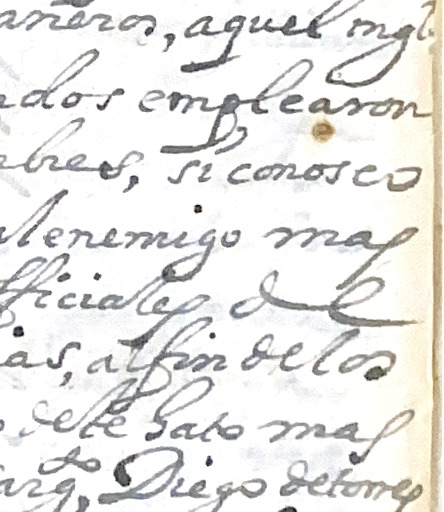 añeros, aquel ingl
ados emplearon
mbres, si conosco
al enemigo mas
fficiales de
ias, al fin de los
de este hato mas
argto, Diego de torres